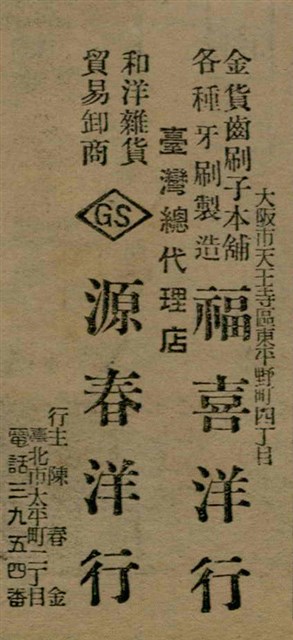 大阪市天王寺區東平野町四丁目
金貨齒刷子本舖
各種牙刷製造
福喜洋行
臺灣總代理店
和洋雜貨
貿易卸商
GS
源春洋行
行主陳春金
臺北市太平町二丁目
電話三九五四番